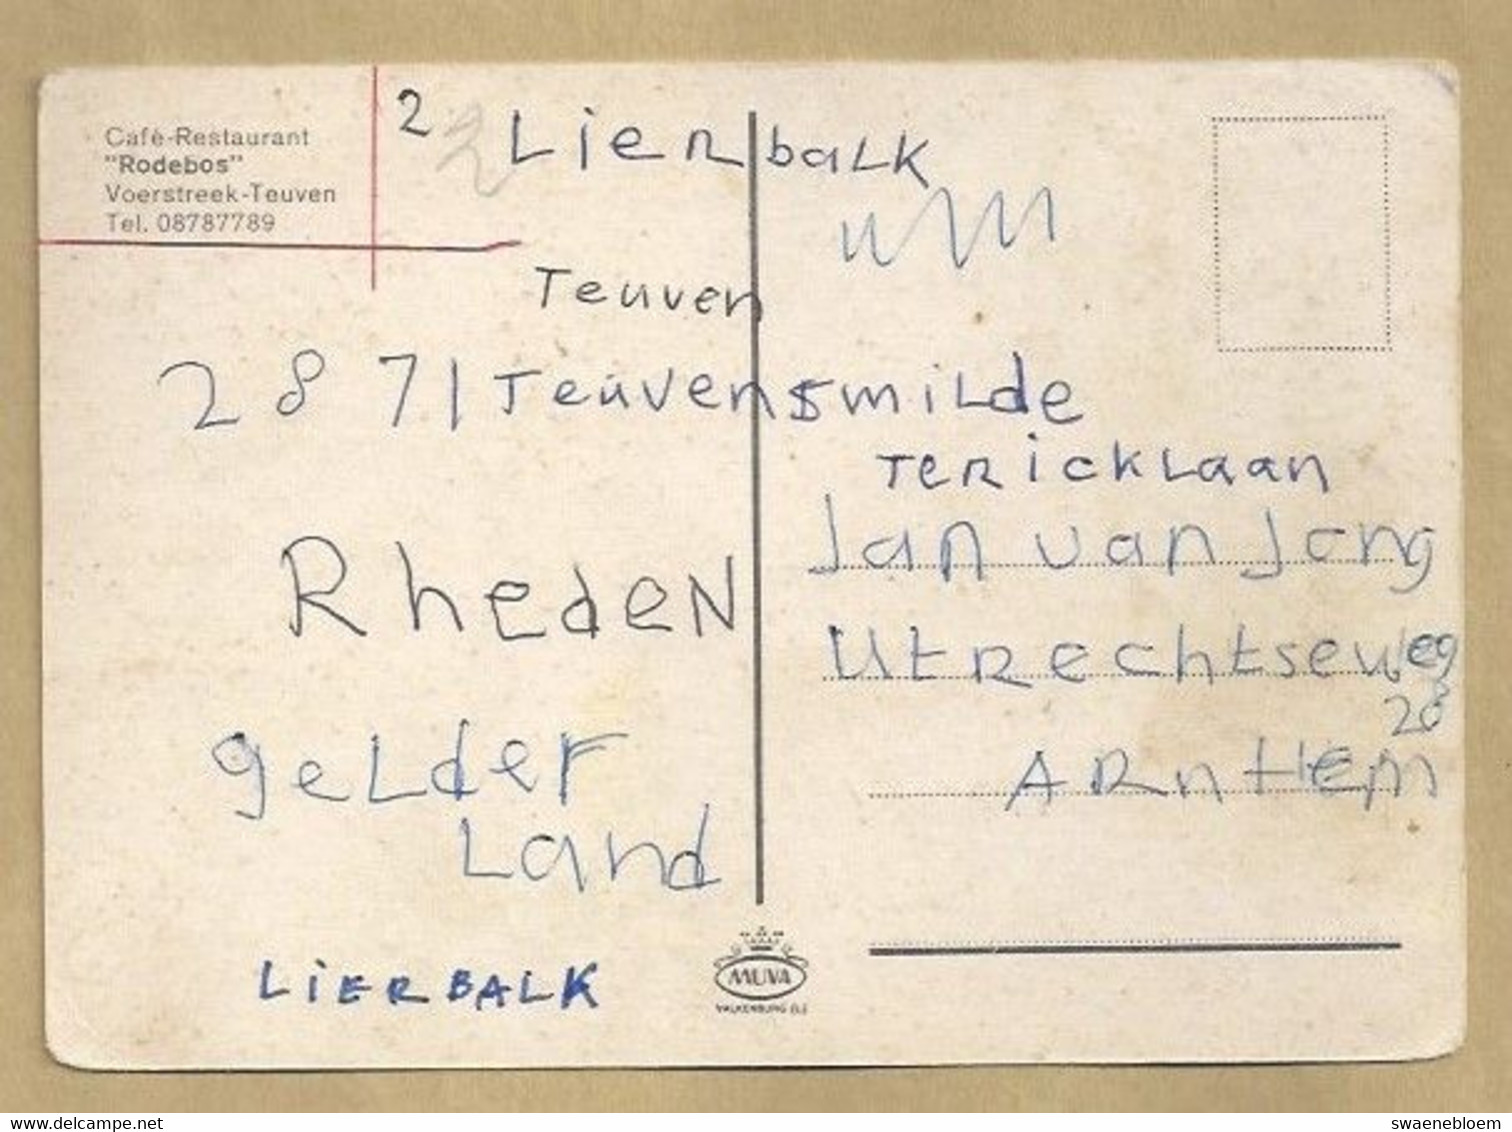 Café-Restaurant
"Rodebos"
Voerstreek-Teuven
Tel. 08787789
2 2 Lier balk
Teuven
2871 Teuvensmilde
TERICKLaan
Jan van Jong
Utrechtseweg
28
ARnHEm
RhedeN
gelder
Land
LiERBALK
MUVA
VALKENBURG
www.delcampe.net
swaenebloem